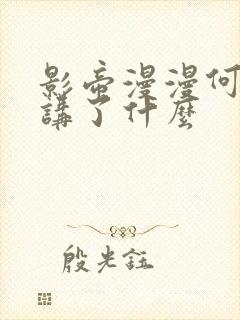 影帝漫漫何
講了什麼
殷光鈺